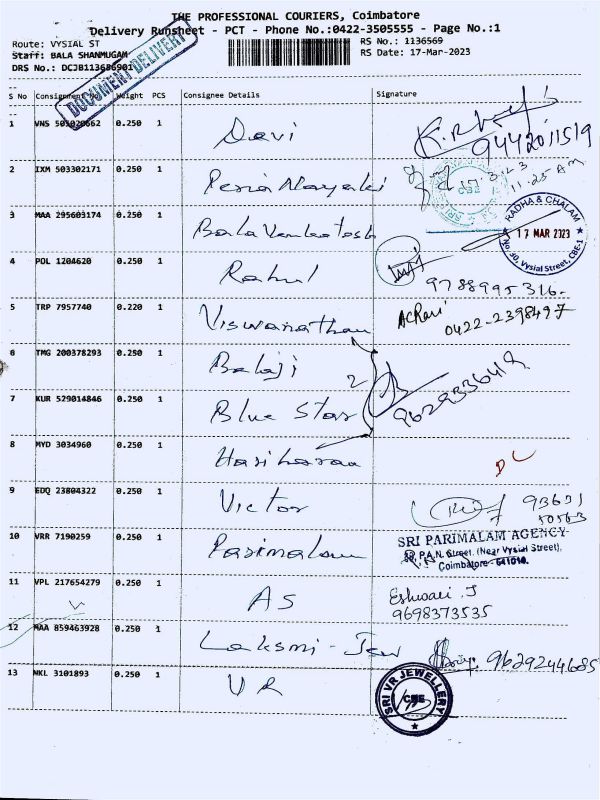 THE PROFESSIONAL COURIERS, Coimbatore
Delivery Runsheet - PCT - Phone No.:0422-3505555 - Page No.:1
Route: VYSIAL ST
RS No.: 1136569
Staff: BALA SHANMUGAM
RS Date: 17-Mar-2023
DRS No.: DCJB113656901
DOCUMENT DELIVERY
S No Consignment No Weight PCS Consignee Details Signature
1 VNS 503020662 0.250 1 Davi
9442011519
2 IXM 503302171 0.250 1 Peria Nayaki
17.3.23
11.25 AM
3 MAA 295603174 0.250 1 Bala Venkatesh
RADHA & CHALAM
17 MAR 2023
No.30, Vysial Street, CBE-1
4 POL 1204620 0.250 1 Rahul
9788995316
5 TRP 7957740 0.220 1 Viswanathan
0422-2398497
6 TMG 200378293 0.250 1 Balaji
2
7 KUR 529014846 0.250 1 Blue Star
8 MYD 3034960 0.250 1 Hariharan
DL
9 EDQ 23804322 0.250 1 Victor
10 VRR 7190259 0.250 1 Parimalam
SRI PARIMALAM AGENCY
P.A.N. Street, (Near Vysial Street),
Coimbatore - 641010.
11 VPL 217654279 0.250 1 AS
Eshwari J
9698373535
12 MAA 859463928 0.250 1 Laksmi - Jew
9629244685
13 NKL 3101893 0.250 1 VR
SRI VR JEWELLERY
CBE